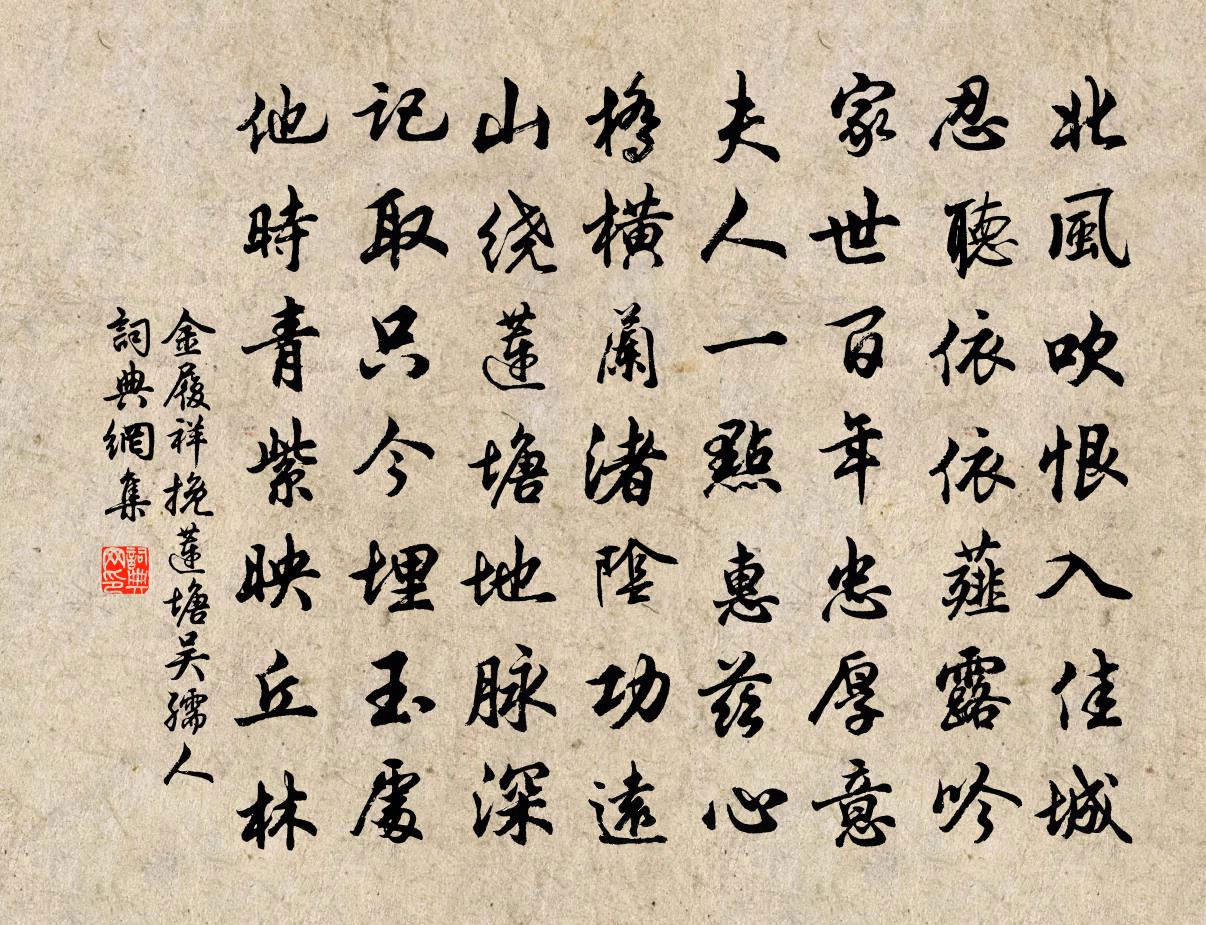 北風吹恨入佳城
忍聽依依薤露吟
家世百年忠厚意
夫人一點惠茲心
橋橫蘭渚陰功遠
山绕蓮塘地脉深
記取只今埋玉處
他時青紫映丘林
金履祥挽蓮塘吴孺人
詞典網集
詞典网印